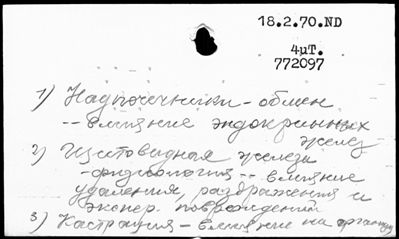 18.2.70.ND
4μT.
772097
1) Надпочечники - обмен
-- влияние эндокринных
желез
2) Щитовидная железа
- физиология -- влияние
удаления, раздражения и
экспер. повреждений
3) Кастрация - влияние на организм